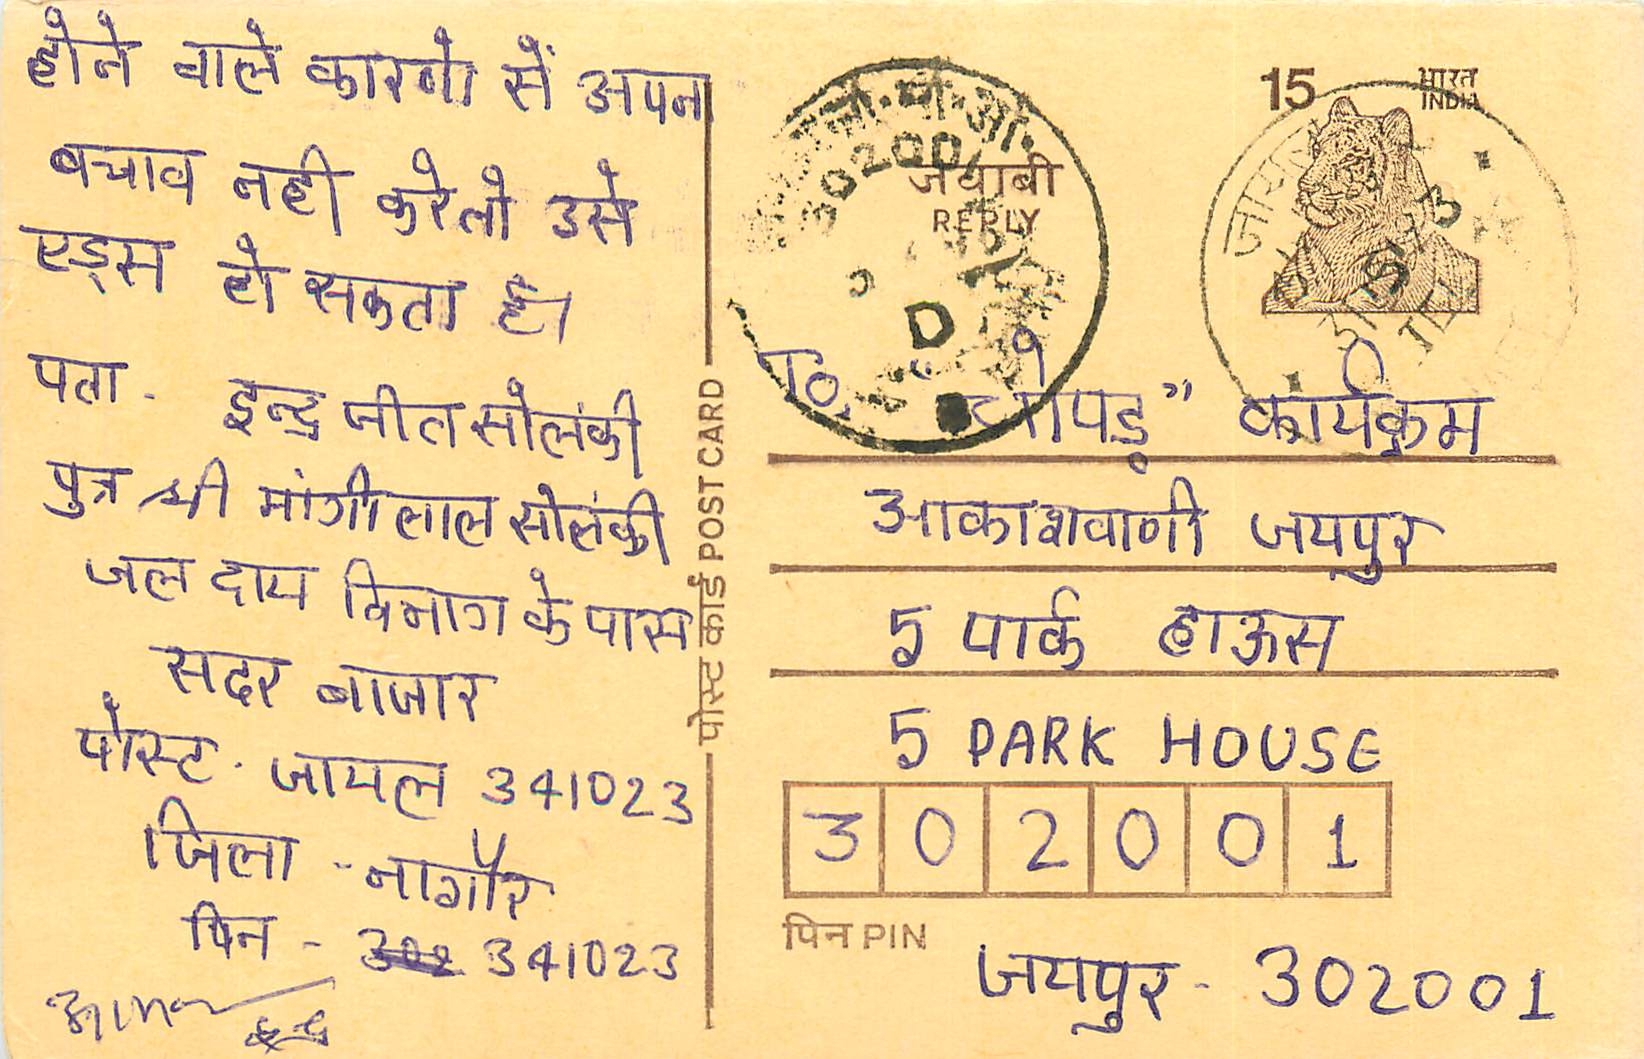 होने वाले कारणो सें अपना
बचाव नही करे तो उसे
एड्स हो सकता है।
पता - इन्द्र जीत सोलंकी
पुत्र श्री मांगी लाल सोलंकी
जल दाय विभाग के पास
सदर बाजार
पोस्ट - जायल 341023
जिला - नागौर
पिन - 341023
पोस्ट कार्ड POST CARD
15 भारत
INDIA
जवाबी
REPLY
जी.पी.ओ.
302001
D
To, "चोपड़" कार्यक्रम
आकाशवाणी जयपुर
5 पार्क हाऊस
5 PARK HOUSE
3 0 2 0 0 1
पिन PIN
जयपुर - 302001